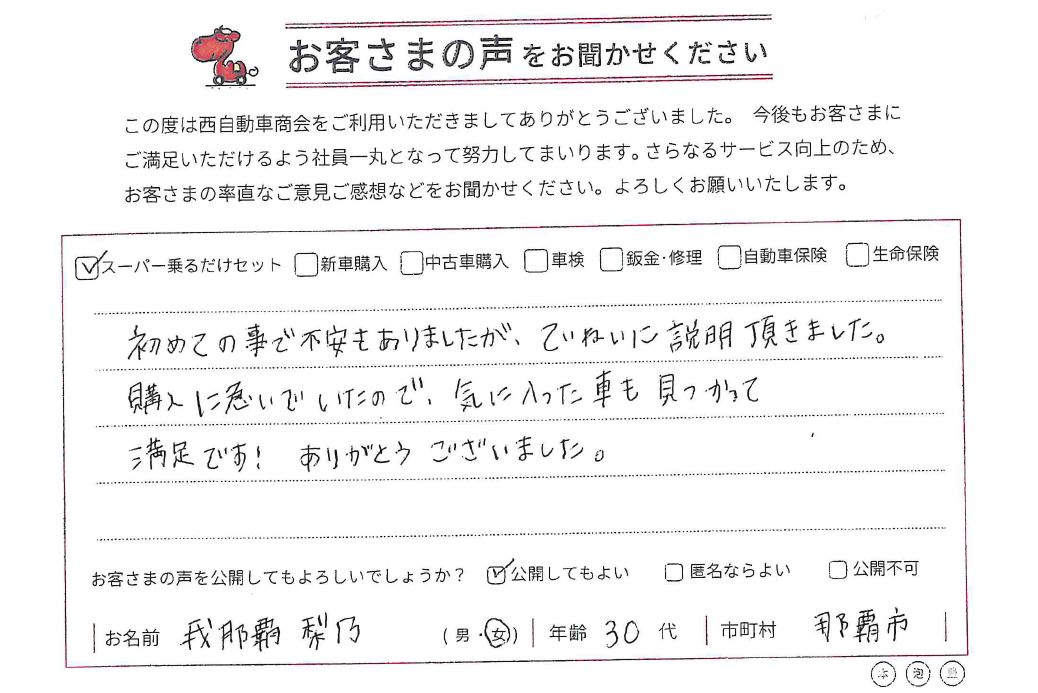 お客さまの声をお聞かせください
この度は西自動車商会をご利用いただきましてありがとうございました。 今後もお客さまに
ご満足いただけるよう社員一丸となって努力してまいります。さらなるサービス向上のため、
お客さまの率直なご意見ご感想などをお聞かせください。よろしくお願いいたします。
☑スーパー乗るだけセット □新車購入 □中古車購入 □車検 □鈑金・修理 □自動車保険 □生命保険
初めての事で不安もありましたが、ていねいに説明頂きました。
購入に急いでいたので、気に入った車も見つかって
満足です! ありがとうございました。
お客さまの声を公開してもよろしいでしょうか? ☑公開してもよい □匿名ならよい □公開不可
お名前 我那覇 梨乃 (男・女) 年齢 30 代 市町村 那覇市
本 泡 豊